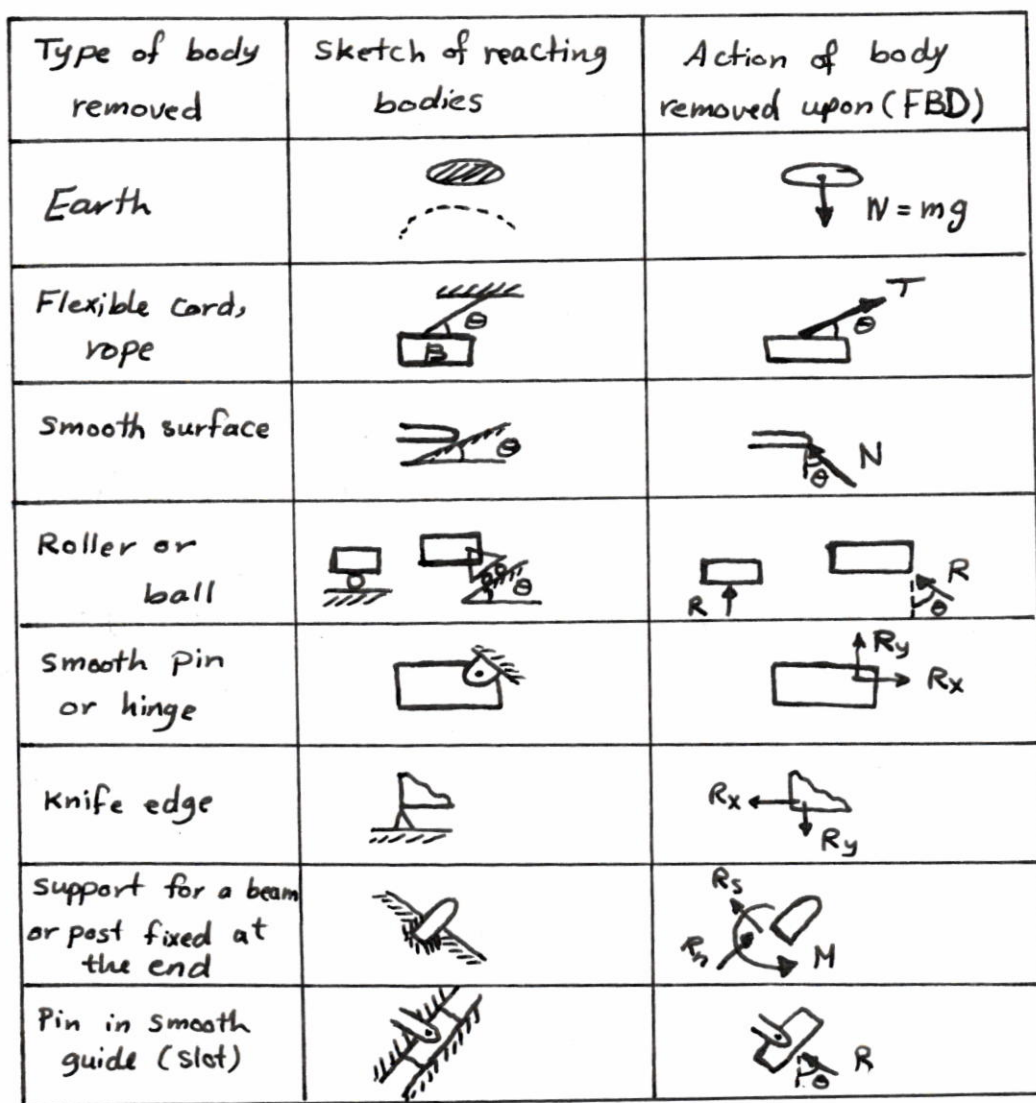 Type of body
removed
Sketch of reacting
bodies
Action of body
removed upon (FBD)
Earth
W = mg
Flexible cord,
rope
θ
B
T
θ
Smooth surface
θ
N
θ
Roller or
ball
θ
R
R
θ
Smooth pin
or hinge
Ry
Rx
Knife edge
Rx
Ry
Support for a beam
or post fixed at
the end
Rs
Rn
M
Pin in smooth
guide (slot)
R
θ